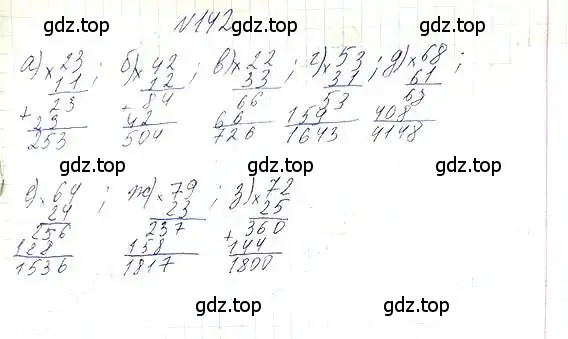 №142
gdz.top gdz.top
а) × 23 ; б) × 42 ; в) × 22 ; г) × 53 ; д) × 68 ;
11 12 33 31 61
+ 23 + 84 66 53 68
23 42 66 159 408
253 504 726 1643 4148
gdz.top gdz.top gdz.top
е) × 64 ; ж) × 79 ; з) × 72
24 23 25
256 237 + 360
128 158 144
1536 1817 1800
gdz.top gdz.top
gdz.top gdz.top gdz.top